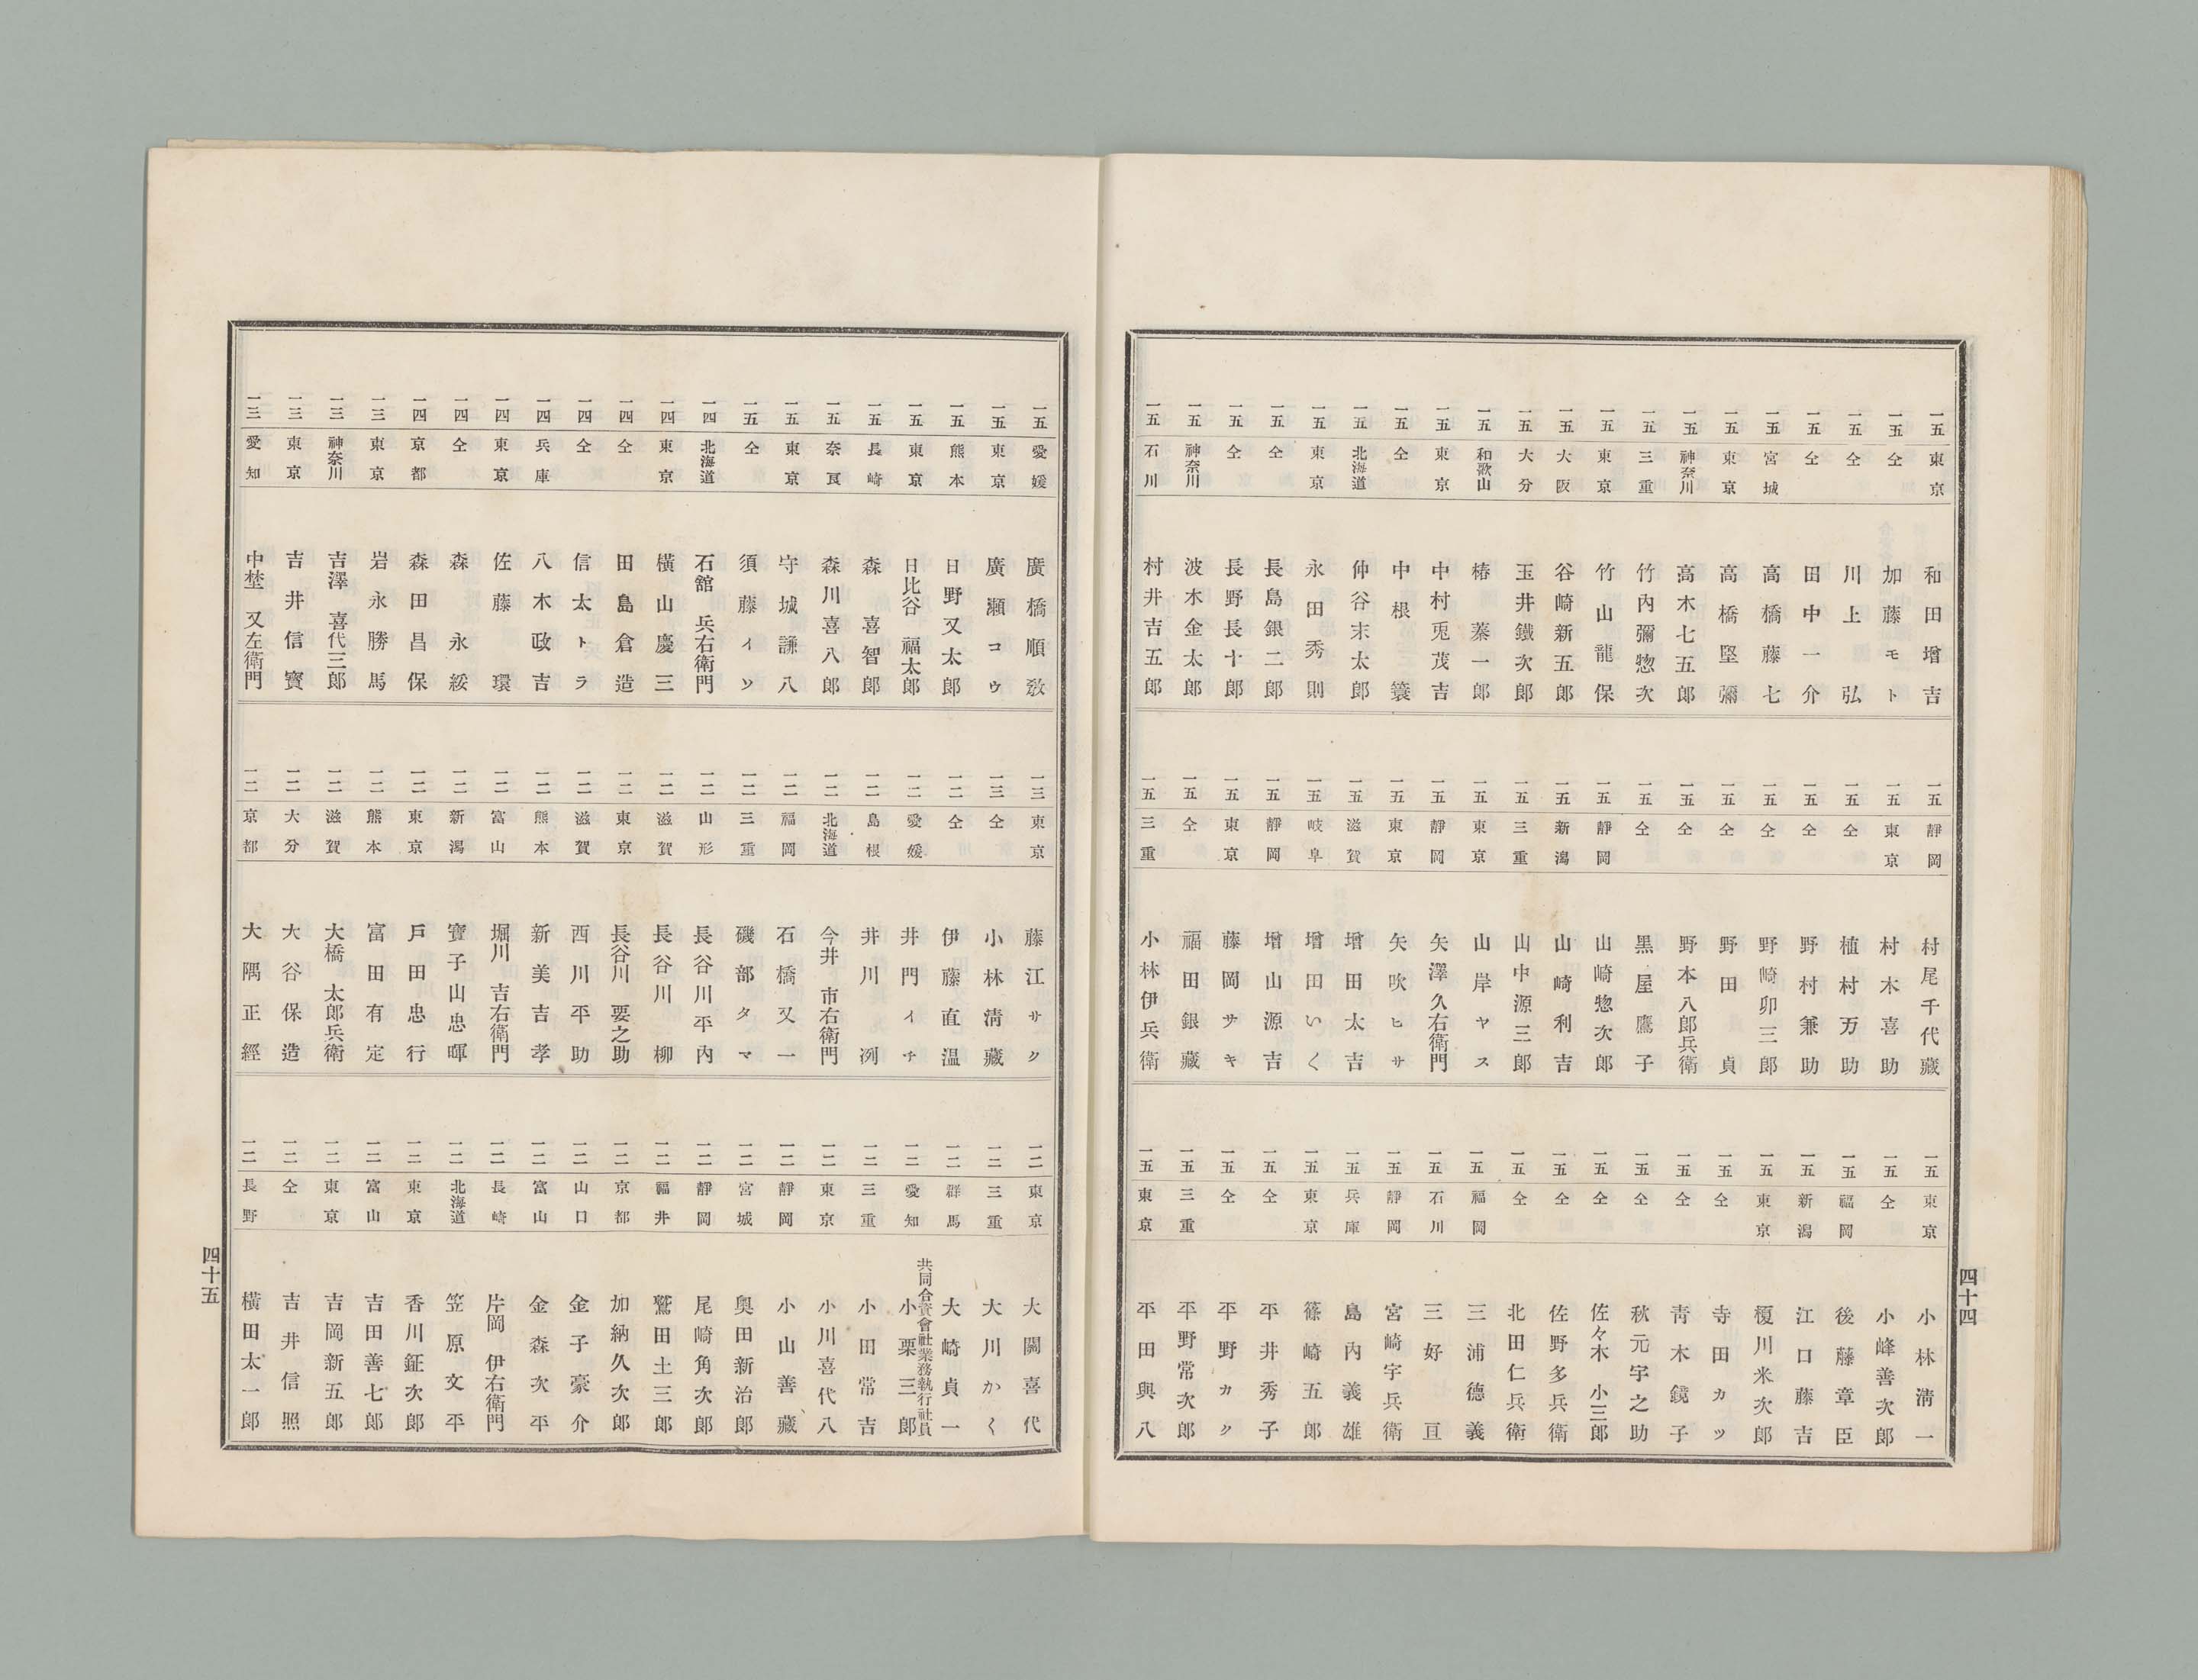 一五 東京 和田增吉
一五 仝 加藤モト
一五 仝 川上弘
一五 仝 田中一介
一五 宮城 高橋藤七
一五 東京 高橋堅彌
一五 神奈川 高木七五郎
一五 三重 竹內彌惣次
一五 東京 竹山龍保
一五 大阪 谷崎新五郎
一五 大分 玉井鐵次郎
一五 和歌山 椿蓁一郎
一五 東京 中村兎茂吉
一五 仝 中根簑
一五 北海道 仲谷末太郎
一五 東京 永田秀則
一五 仝 長島銀二郎
一五 仝 長野長十郎
一五 神奈川 波木金太郎
一五 石川 村井吉五郎
一五 靜岡 村尾千代藏
一五 東京 村木喜助
一五 仝 植村万助
一五 仝 野村兼助
一五 仝 野崎卯三郎
一五 仝 野田貞
一五 仝 野本八郎兵衛
一五 仝 黑屋鷹子
一五 靜岡 山崎惣次郎
一五 新潟 山崎利吉
一五 三重 山中源三郎
一五 東京 山岸ヤス
一五 靜岡 矢澤久右衛門
一五 東京 矢吹ヒサ
一五 滋賀 增田太吉
一五 岐阜 增田いく
一五 靜岡 增山源吉
一五 東京 藤岡サキ
一五 仝 福田銀藏
一五 三重 小林伊兵衛
一五 東京 小林淸一
一五 仝 小峰善次郎
一五 福岡 後藤章臣
一五 新潟 江口藤吉
一五 東京 榎川米次郎
一五 仝 寺田カツ
一五 仝 靑木鏡子
一五 仝 秋元宇之助
一五 仝 佐々木小三郎
一五 仝 佐野多兵衛
一五 仝 北田仁兵衛
一五 福岡 三浦德義
一五 石川 三好亘
一五 靜岡 宮崎宇兵衛
一五 兵庫 島內義雄
一五 東京 篠崎五郎
一五 仝 平井秀子
一五 仝 平野カク
一五 三重 平野常次郎
一五 東京 平田與八
四十四
一五 愛媛 廣橋順敎
一五 東京 廣瀨コウ
一五 熊本 日野又太郎
一五 東京 日比谷福太郎
一五 長崎 森喜智郎
一五 奈良 森川喜八郎
一五 東京 守城謙八
一五 仝 須藤イツ
一四 北海道 石舘兵右衛門
一四 東京 橫山慶三
一四 仝 田島倉造
一四 仝 信太トラ
一四 兵庫 八木政吉
一四 東京 佐藤環
一四 仝 森永綏
一四 京都 森田昌保
一三 東京 岩永勝馬
一三 神奈川 吉澤喜代三郎
一三 東京 吉井信寶
一三 愛知 中埜又左衛門
一三 東京 藤江サク
一三 仝 小林淸藏
一二 仝 伊藤直温
一二 愛媛 井門イチ
一二 島根 井川洌
一二 北海道 今井市右衛門
一二 福岡 石橋又一
一二 三重 磯部タマ
一二 山形 長谷川平內
一二 滋賀 長谷川柳
一二 東京 長谷川要之助
一二 滋賀 西川平助
一二 熊本 新美吉孝
一二 富山 堀川吉右衛門
一二 新潟 寶子山忠暉
一二 東京 戶田忠行
一二 熊本 富田有定
一二 滋賀 大橋太郎兵衛
一二 大分 大谷保造
一二 京都 大隅正經
一二 東京 大關喜代
一二 三重 大川かく
一二 群馬 大崎貞一
一二 愛知 共同合資會社業務執行社員 小栗三郎
一二 三重 小田常吉
一二 東京 小川喜代八
一二 靜岡 小山善藏
一二 宮城 奧田新治郎
一二 靜岡 尾崎角次郎
一二 福井 鷲田土三郎
一二 京都 加納久次郎
一二 山口 金子豪介
一二 富山 金森次平
一二 長崎 片岡伊右衛門
一二 北海道 笠原文平
一二 東京 香川鉦次郎
一二 富山 吉田善七郎
一二 東京 吉岡新五郎
一二 仝 吉井信照
一二 長野 橫田太一郎
四十五